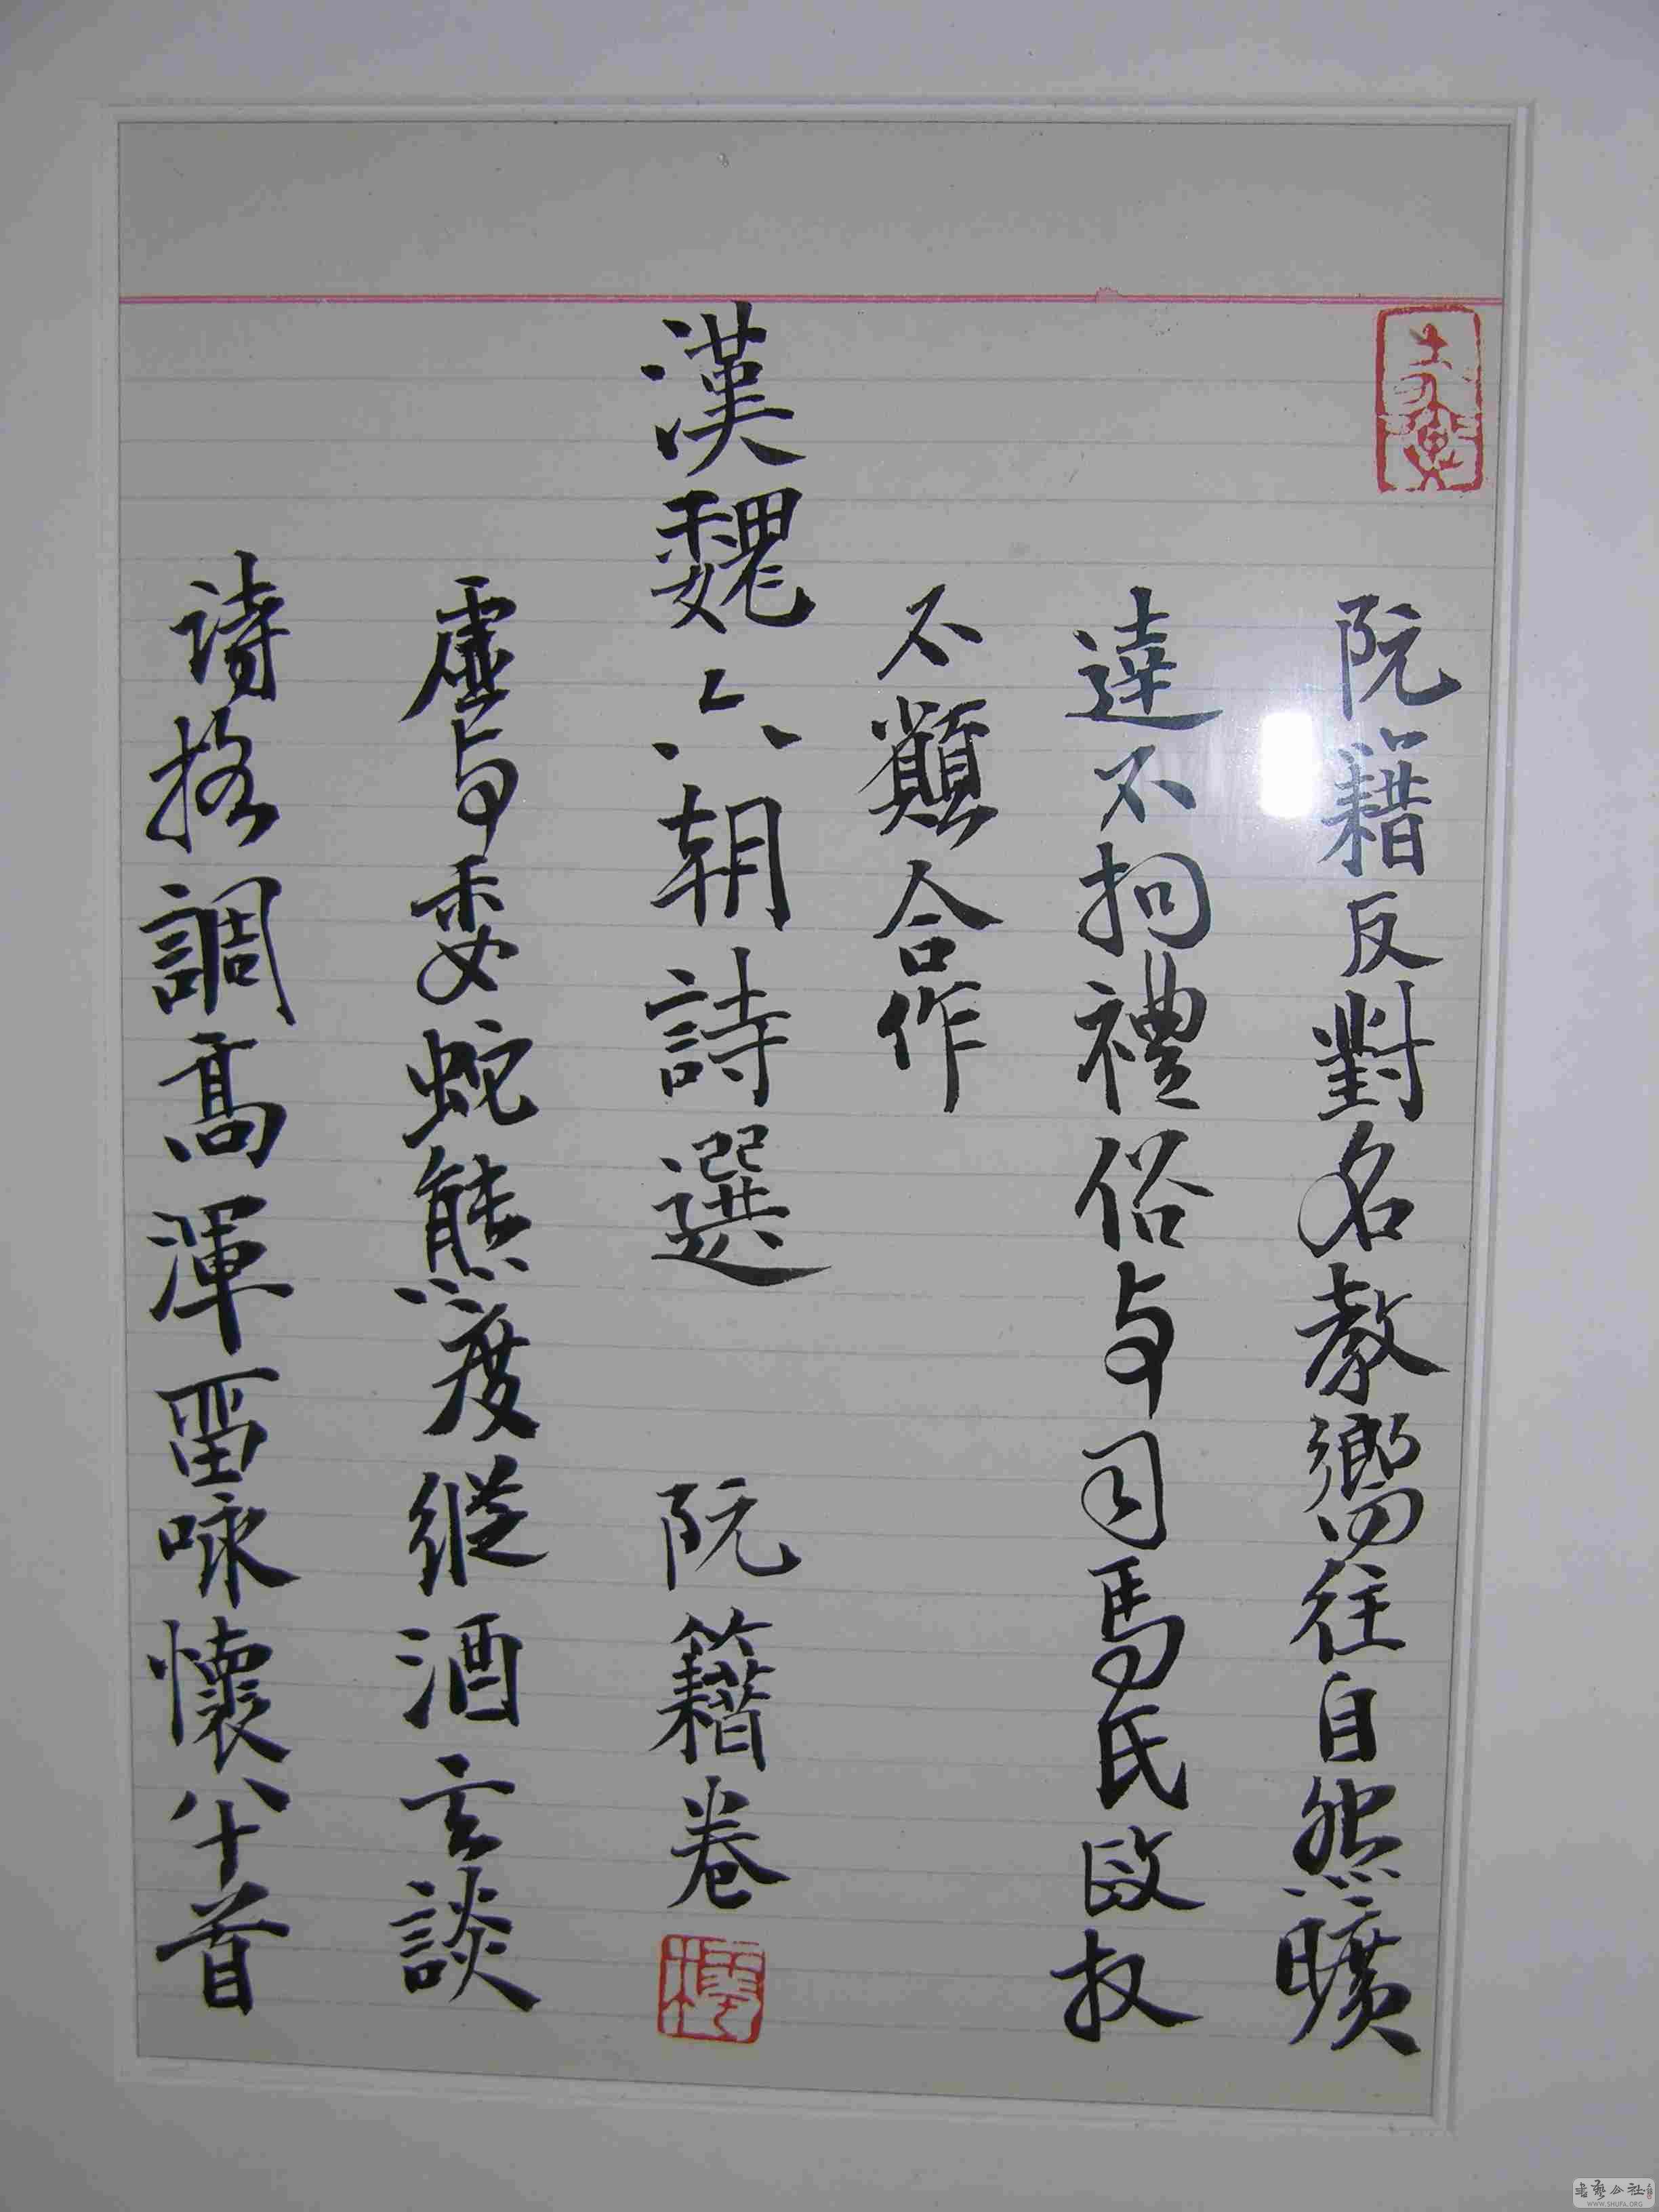 阮籍反對名教嚮往自然曠
達不拘禮俗与司馬氏政权
不願合作
漢魏六朝詩選 阮籍卷
虛与委蛇態度縱酒玄談
诗格調高渾留咏懷八十首
書藝公社
WWW.SHUFA.ORG